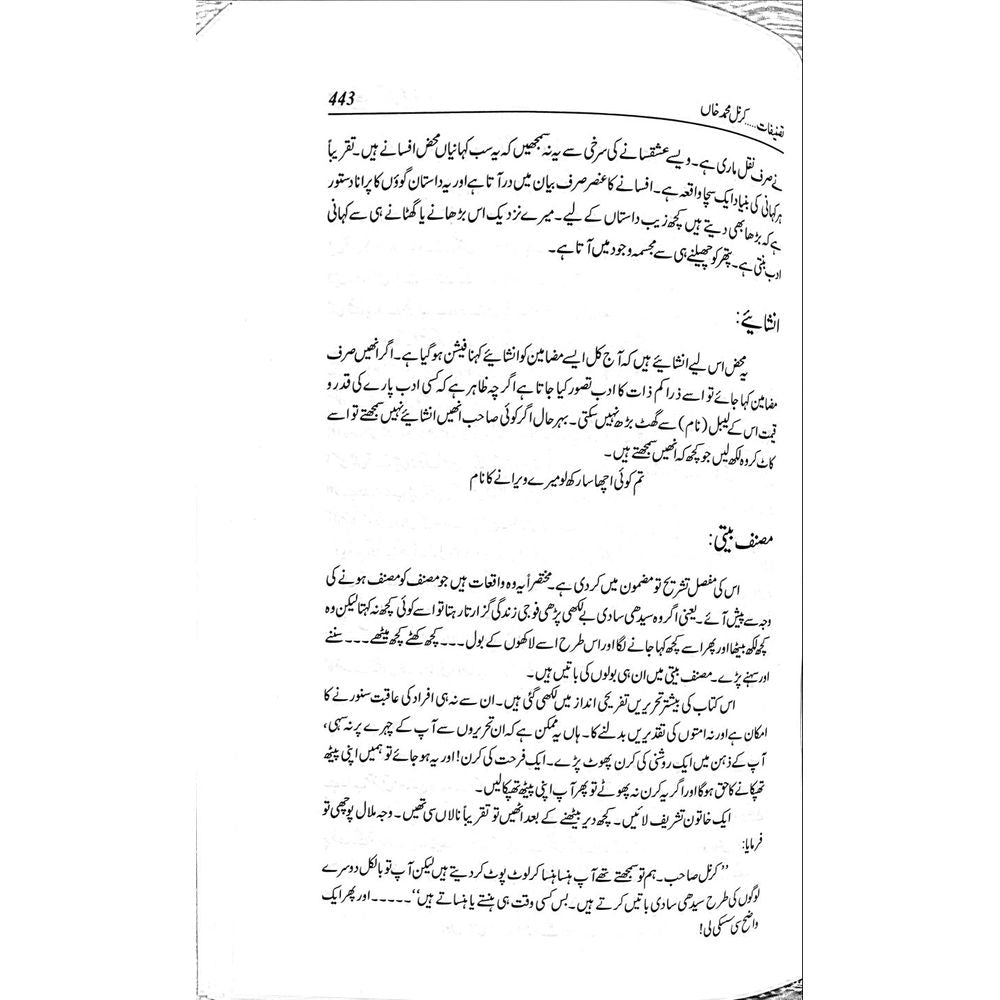 تصنیفات.....کرنل محمد خاں
443
نے صرف نقل ماری ہے۔ ویسے عشقسانے کی سرخی سے یہ نہ سمجھیں کہ یہ سب کہانیاں محض افسانے ہیں۔ تقریباً
ہر کہانی کی بنیاد ایک سچا واقعہ ہے۔ افسانے کا عنصر صرف بیان میں در آتا ہے اور یہ داستان گوؤں کا پرانا دستور
ہے کہ بڑھا بھی دیتے ہیں کچھ زیب داستاں کے لیے۔ میرے نزدیک اس بڑھانے یا گھٹانے ہی سے کہانی
ادب بنتی ہے۔ پتھر کو چھیلنے ہی سے مجسمہ وجود میں آتا ہے۔
انشائیے:
یہ محض اس لیے انشائیے ہیں کہ آج کل ایسے مضامین کو انشائیے کہنا فیشن ہو گیا ہے۔ اگر انھیں صرف
مضامین کہا جائے تو اسے ذرا کم ذات کا ادب تصور کیا جاتا ہے اگرچہ ظاہر ہے کہ کسی ادب پارے کی قدر و
قیمت اس کے لیبل (نام) سے گھٹ بڑھ نہیں سکتی۔ بہرحال اگر کوئی صاحب انھیں انشائیے نہیں سمجھتے تو اسے
کاٹ کر وہ لکھ لیں جو کچھ کہ انھیں سمجھتے ہیں۔
تم کوئی اچھا سا رکھ لو میرے ویرانے کا نام
مصنف بیتی:
اس کی مفصل تشریح تو مضمون میں کر دی ہے۔ مختصراً یہ وہ واقعات ہیں جو مصنف کو مصنف ہونے کی
وجہ سے پیش آئے۔ یعنی اگر وہ سیدھی سادی بے لکھی پڑھی فوجی زندگی گزارتا رہتا تو اسے کوئی کچھ نہ کہتا لیکن وہ
کچھ لکھ بیٹھا اور پھر اسے کچھ کہا جانے لگا اور اس طرح اسے لاکھوں کے بول۔۔۔ کچھ کھٹے کچھ میٹھے۔۔۔۔ سننے
اور سہنے پڑے۔ مصنف بیتی میں ان ہی بولوں کی باتیں ہیں۔
اس کتاب کی بیشتر تحریریں تفریحی انداز میں لکھی گئی ہیں۔ ان سے نہ ہی افراد کی عاقبت سنورنے کا
امکان ہے اور نہ امتوں کی تقدیریں بدلنے کا۔ ہاں یہ ممکن ہے کہ ان تحریروں سے آپ کے چہرے پر نہ سہی،
آپ کے ذہن میں ایک روشنی کی کرن پھوٹ پڑے۔ ایک فرحت کی کرن! اور یہ ہو جائے تو ہمیں اپنی پیٹھ
تھپکانے کا حق ہوگا اور اگر یہ کرن نہ پھوٹے تو پھر آپ اپنی پیٹھ تھپکا لیں۔
ایک خاتون تشریف لائیں۔ کچھ دیر بیٹھنے کے بعد اٹھیں تو تقریباً نالاں سی تھیں۔ وجہ ملال پوچھی تو
فرمایا:
”کرنل صاحب۔ ہم تو سمجھتے تھے آپ ہنسا ہنسا کر لوٹ پوٹ کر دیتے ہیں لیکن آپ تو بالکل دوسرے
لوگوں کی طرح سیدھی سادی باتیں کرتے ہیں۔ بس کسی وقت ہی ہنستے یا ہنساتے ہیں“۔۔۔۔۔ اور پھر ایک
واضح سی سسکی لی!